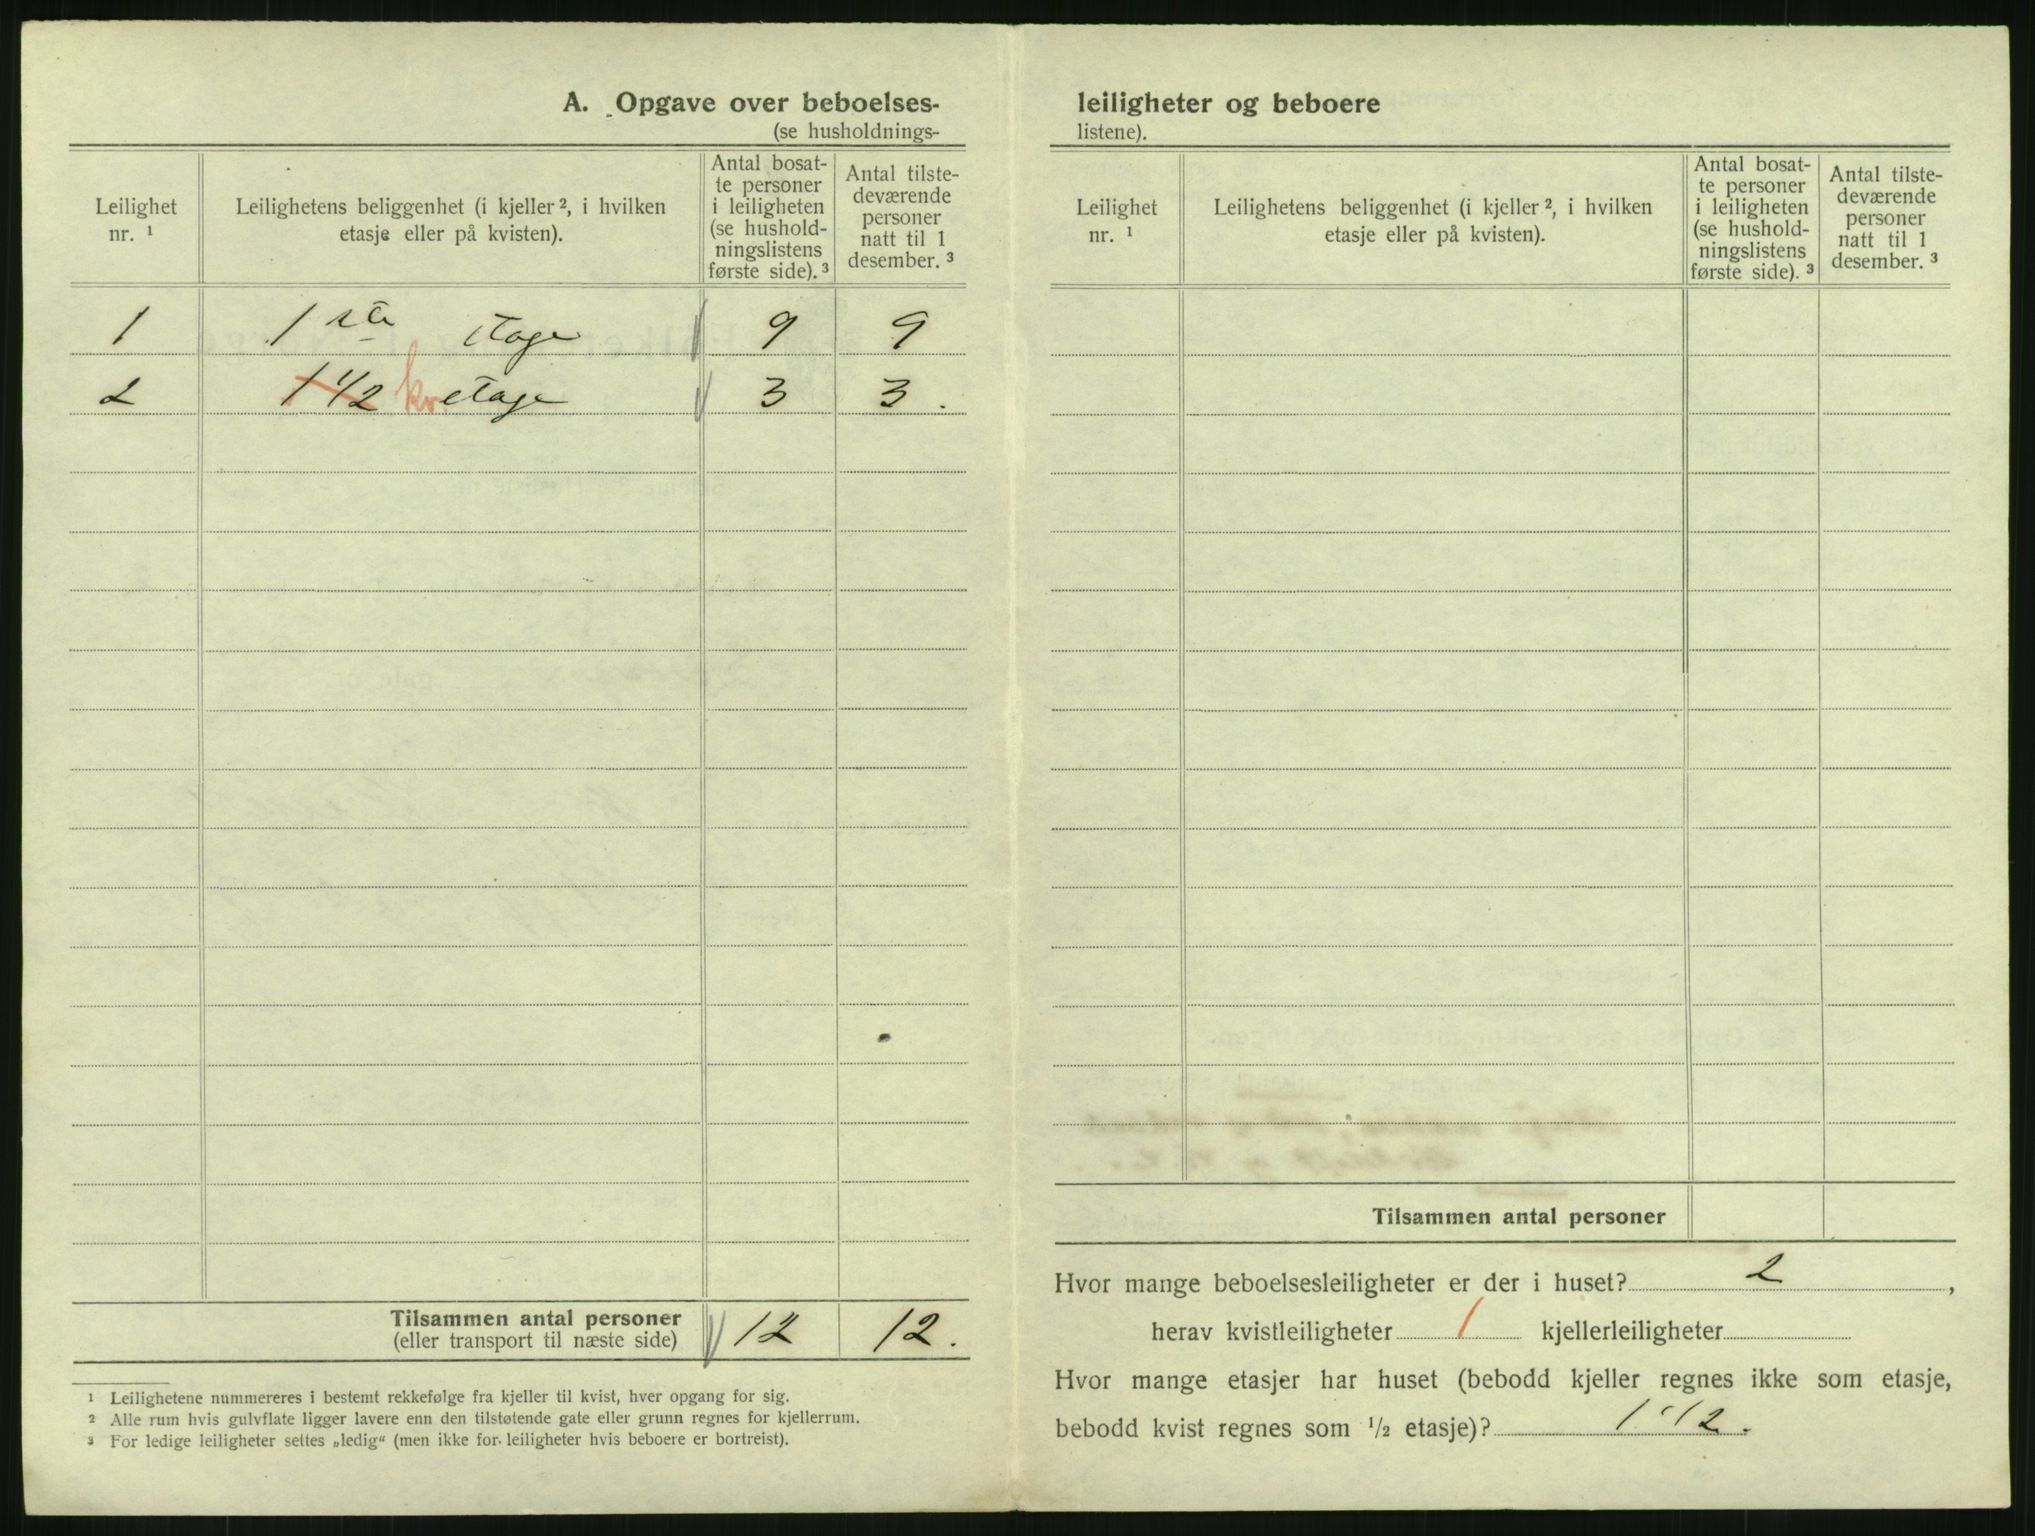 A. Opgave over beboelses-
(se husholdnings-
Leilighet nr. ¹
Leilighetens beliggenhet (i kjeller ², i hvilken etasje eller på kvisten).
Antal bosat-
te personer
i leiligheten
(se hushold-
ningslistens
første side). ³
Antal tilste-
deværende
personer
natt til 1
desember. ³
1 1ste etage 9 9
2 1 1/2 kv. etage 3 3.
Tilsammen antal personer 12 12.
(eller transport til næste side)
¹ Leilighetene nummereres i bestemt rekkefølge fra kjeller til kvist, hver opgang for sig.
² Alle rum hvis gulvflate ligger lavere enn den tilstøtende gate eller grunn regnes for kjellerrum.
³ For ledige leiligheter settes „ledig“ (men ikke for leiligheter hvis beboere er bortreist).
leiligheter og beboere
listene).
Leilighet nr. ¹
Leilighetens beliggenhet (i kjeller ², i hvilken etasje eller på kvisten).
Antal bosat-
te personer
i leiligheten
(se hushold-
ningslistens
første side). ³
Antal tilste-
deværende
personer
natt til 1
desember. ³
Tilsammen antal personer
Hvor mange beboelsesleiligheter er der i huset? 2,
herav kvistleiligheter 1 kjellerleiligheter
Hvor mange etasjer har huset (bebodd kjeller regnes ikke som etasje,
bebodd kvist regnes som ½ etasje)? 1 1/2.